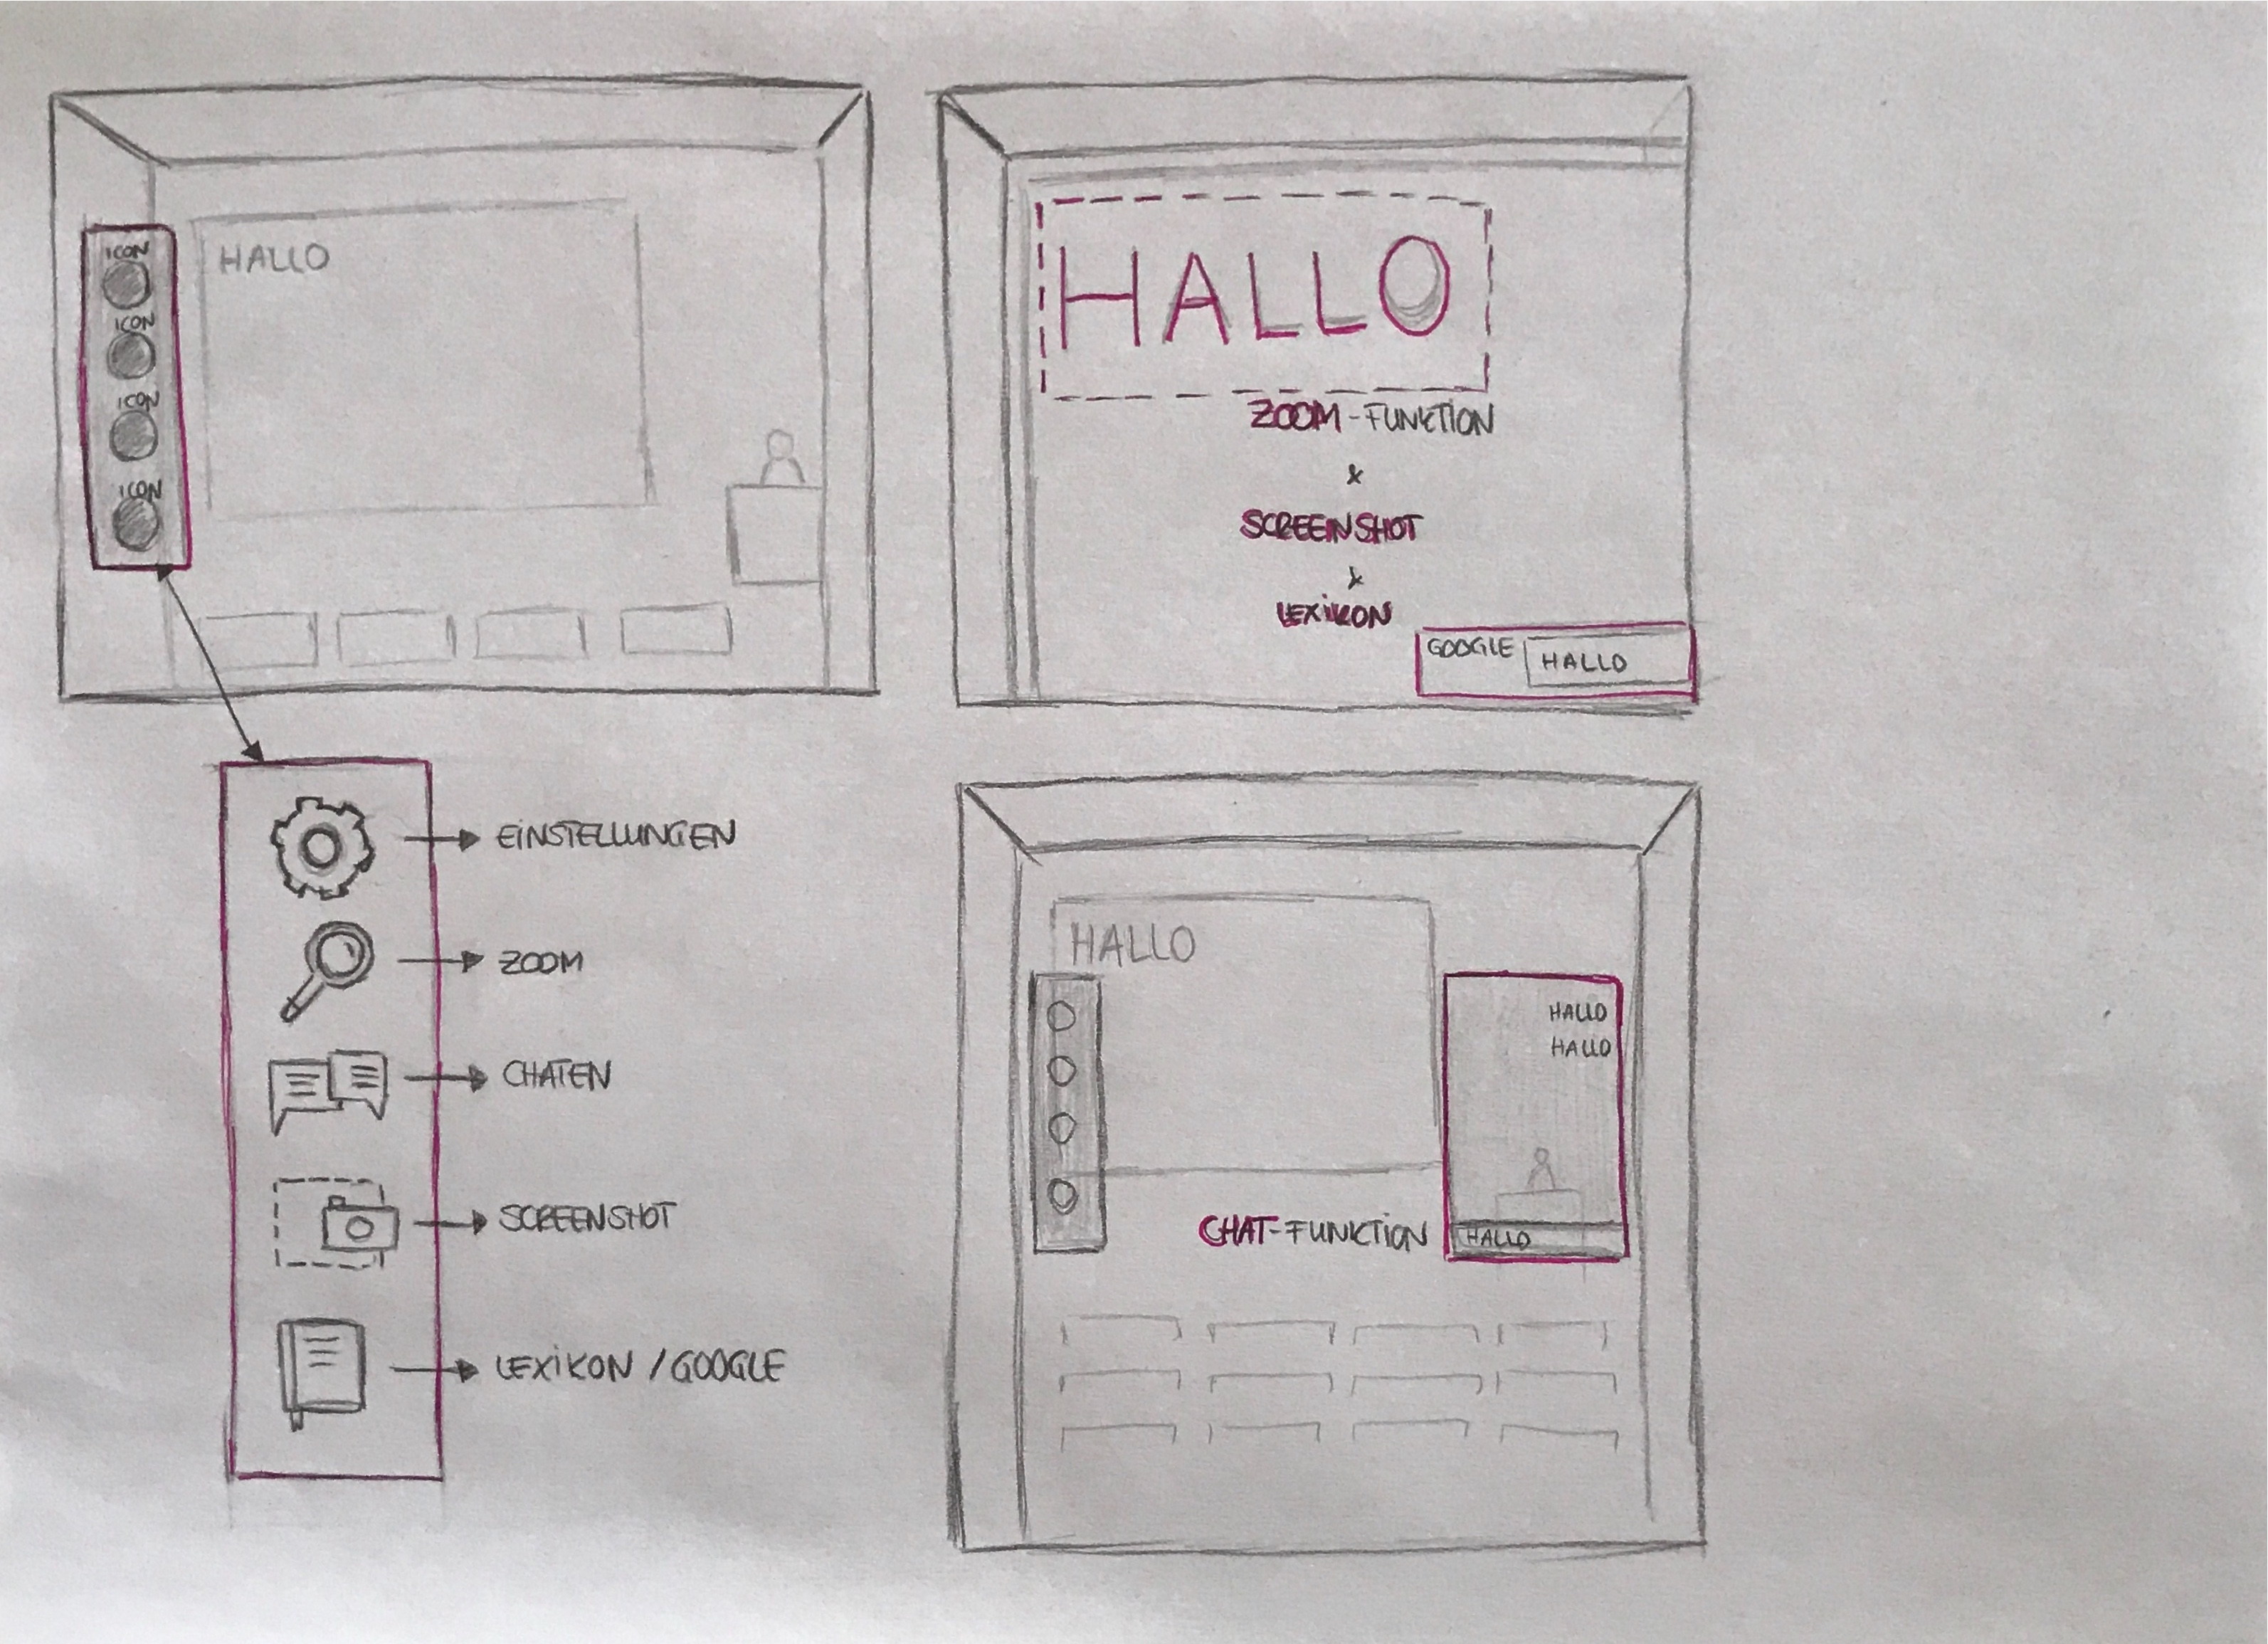 ICON
HALLO
ICON
ICON
ICON
HALLO
ZOOM-FUNKTION
&
SCREENSHOT
&
LEXIKON
GOOGLE
HALLO
EINSTELLUNGEN
ZOOM
CHATEN
SCREENSHOT
LEXIKON / GOOGLE
HALLO
HALLO
HALLO
CHAT-FUNKTION
HALLO